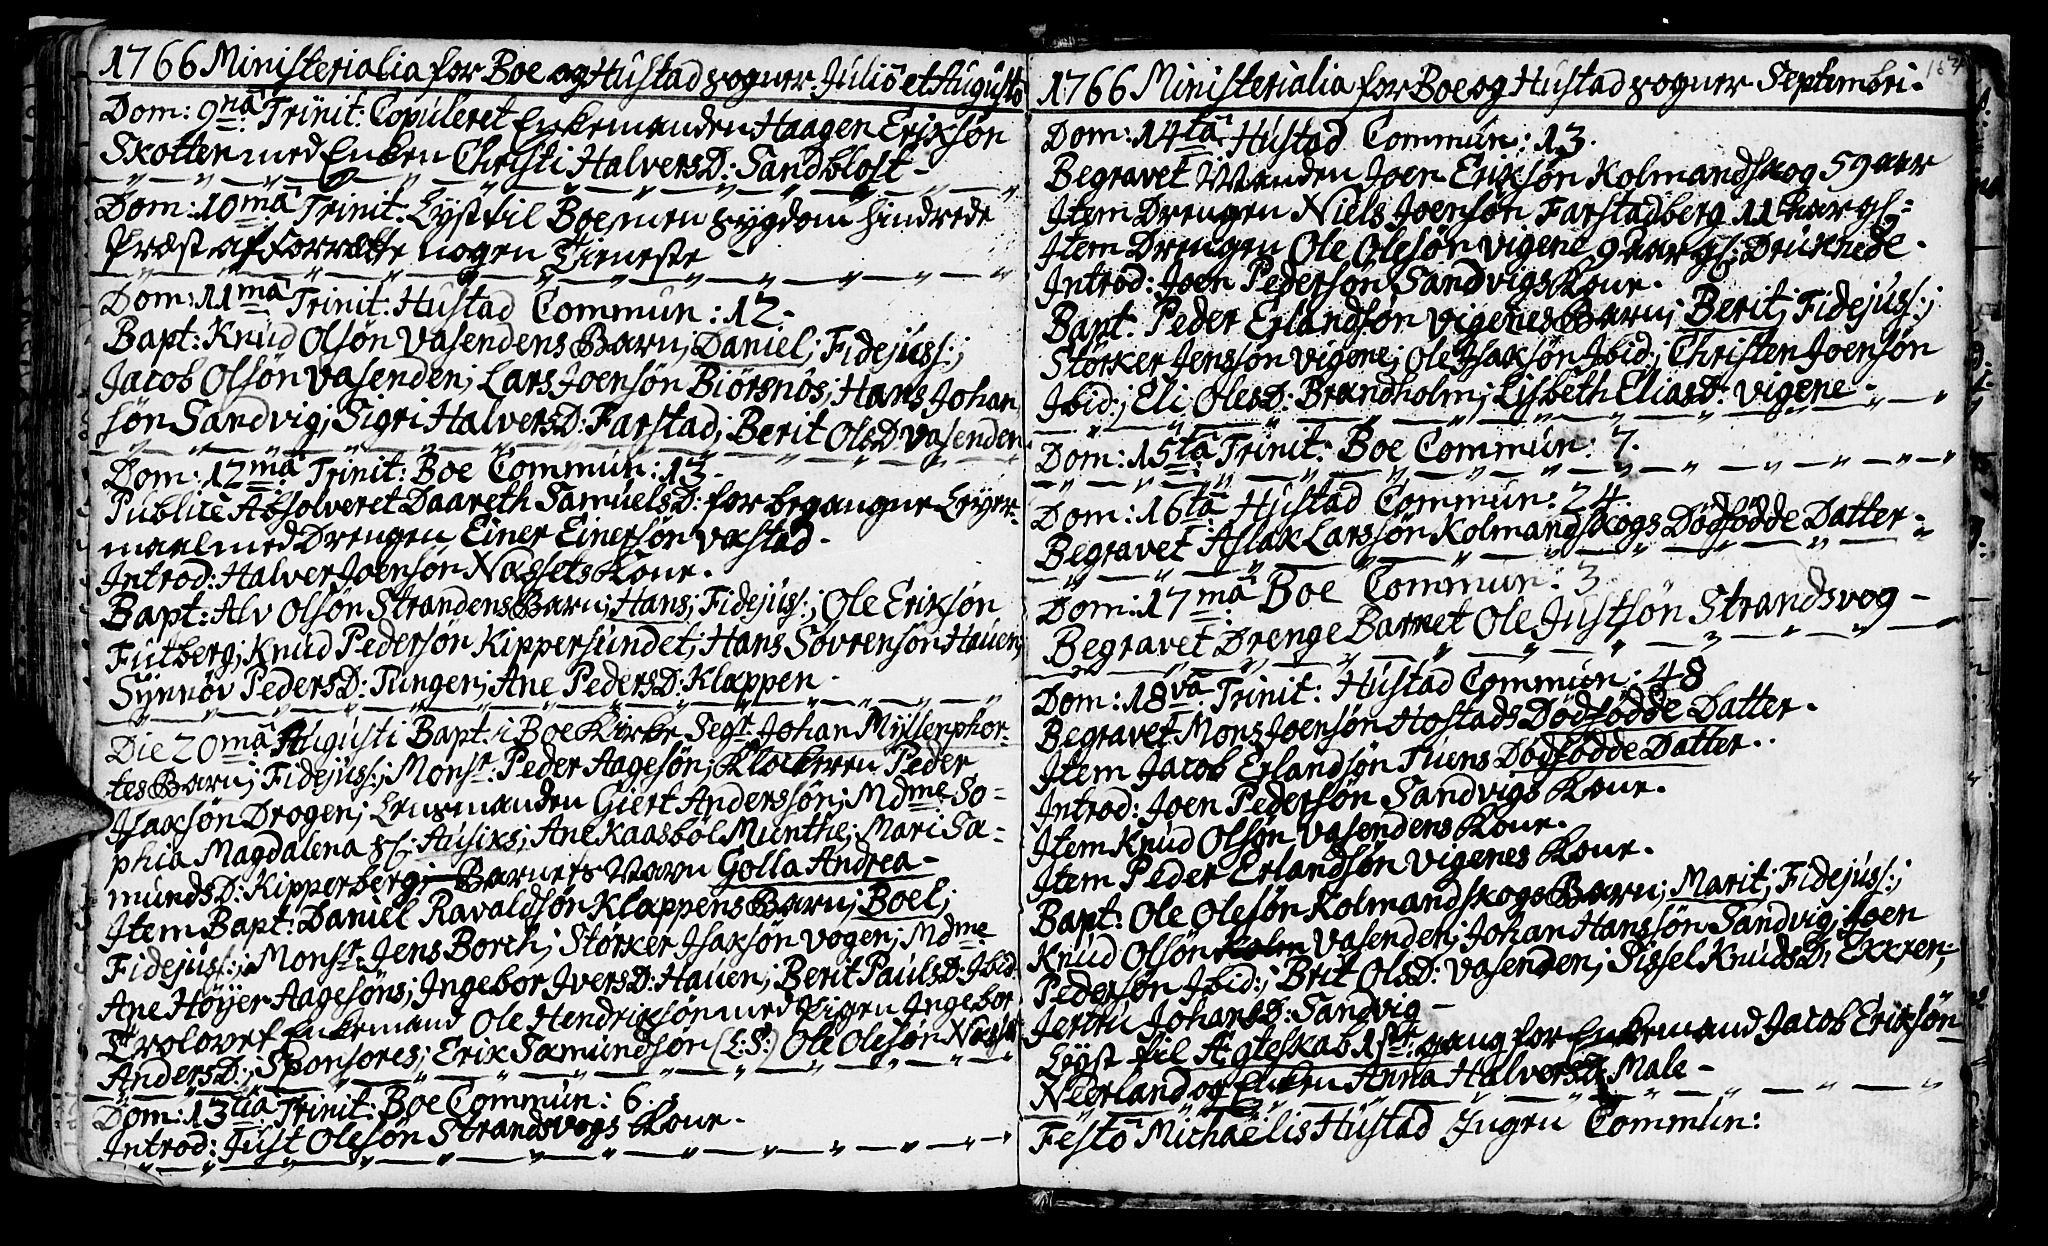 1766 Ministerialia for Boe og Hustad sogner. Julio et Augusto
Dom: 9na Trinit: Copuleret Enkemanden Haagen Eriksøn
Skotten med Enken Christi HalversD: Sandblost -
Dom: 10ma Trinit: Lyst til Boe, men sygdom hindrede
Præst at forrette nogen Tieneste
Dom: 11ma Trinit: Hustad Commun: 12.
Bapt: Knud Olsøn Vasendens Barn; Daniel; Fidejuss:;
Jacob Olsøn Vasenden; Lars Joensøn Biørsnøs; Hans Johan
søn Sandvig; Sigri HalversD: Farstad; Berit OlsD: Vasenden
Dom: 12ma Trinit: Boe Commun: 13.
Publice Absolveret Daareth SamuelsD: for begangne Leyer-
maal med Drengen Einer Einersøn Vastad.
Introd: Halver Joensøn Nassets Kone.
Bapt: Alv Olsøn Strandens Barn; Hans; Fidejuss:; Ole Eriksøn
Futberg; Knud Pedersøn Kippersundet; Hans Søvrensøn Hauen;
Synnøv PedersD: Tungen; Ane PedersD: Klappen.
Die 20ma Augusti Bapt: i Boe Kirke Segr. Johan Myllenphor-
tes Barn; Fidejuss:; Monsr. Peder Aagesøn; Klockeren Peder
Isaksøn Drogen; Lensmanden Giert Anderssøn; Mdme So-
phia Magdalena sl: Ausiks; Ane Kaasbøl Munthe; Mari Sa-
mundsD: Kipperberg; Barnets Navn Golla Andrea -
Item Bapt: Daniel Ravaldsøn Klappens Barn; Boel;
Fidejuss:; Monsr. Jens Borch; Størker Isaksøn Vogen; Mdme
Ane Høyer Aagesøns; Ingebor IversD: Hauen; Berit PaulsD: Ibid.
Trolovet Enkemand Ole Hendriksøn med Pigen Ingebor
AndersD:; Sponsores; Erik Samundsøn (L:S:) Ole Olesøn Nasset
Dom: 13tia Trinit: Boe Commun: 6.
Introd: Just Olesøn Strandsvogs Kone.
1766 Ministerialia for Boe og Hustad sogner Septembri.
Dom: 14ta Hustad Commun: 13.
Begravet Manden Joen Eriksøn Kolmandskog 59 aar
Item Drengen Niels Joensøn Farstadberg 11 aar gl:
Item Drengen Ole Olesøn Vigene 9 aar gl: Druknede.
Introd: Joen Pedersøn Sandvigs Kone.
Bapt: Peder Erlandsøn Vigenes Barn; Berit; Fidejuss:;
Størker Jenssøn Vigene; Ole Isaksøn Ibid:; Christen Joensøn
Ibid:; Eli OlesD: Brandholm; Lisbeth EliasD: Vigene -
Dom: 15ta Trinit: Boe Commun: 7.
Dom: 16ta Hustad Commun: 24.
Begravet Aslak Larssøn Kolmandskogs Dødfødde Datter.
Dom: 17ma Boe Commun: 3
Begravet Drenge Barnet Ole Justsøn Strandsvog -
Dom: 18va Trinit: Hustad Commun: 48
Begravet Mons Joensøn Hostads Dødfødde Datter.
Item Jacob Erlandsøn Tuens Dødfødde Datter.
Introd: Joen Pedersøn Sandvigs Kone.
Item Knud Olsøn Vasendens Kone.
Item Peder Erlandsøn Vigenes Kone.
Bapt: Ole Olesøn Kolmandskogs Barn; Marit; Fidejuss:;
Knud Olsøn Kolm Vasenden; Johan Hanssøn Sandvig; Joen
Pedersøn Ibid:; Brit OlsD: Vasenden; Sissel KnudsD: Exren;
Jertru JohansD: Sandvig -
Lyst til Ægteskab 1ste gang for Enkemand Jacob Eriksøn
Neerland og Enken Anna HalversD: Male -
Festo Michaëlis Hustad Ingen Commun: